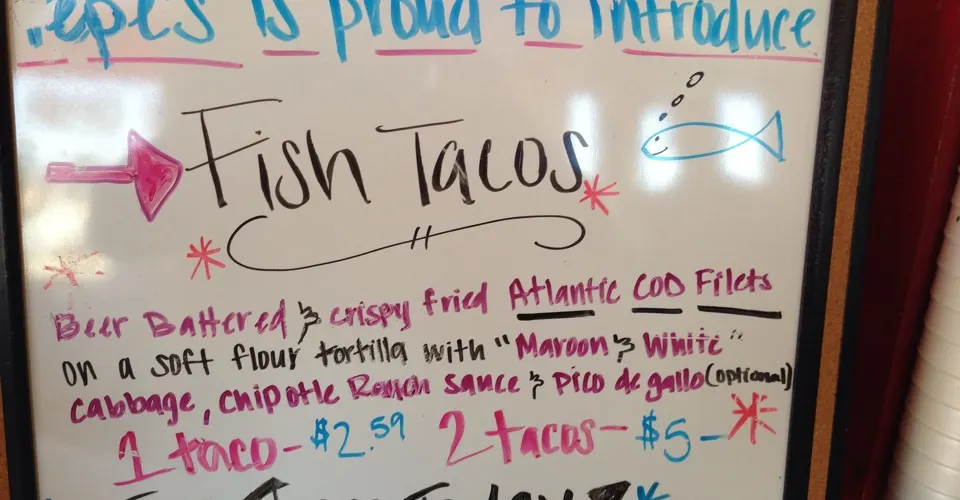 is proud to introduce
Fish Tacos
Beer Battered & crispy fried Atlantic COD Filets
on a soft flour tortilla with "Maroon & White"
cabbage, chipotle Ranch sauce & pico de gallo (optional)
1 taco - $2.59 2 tacos - $5 -